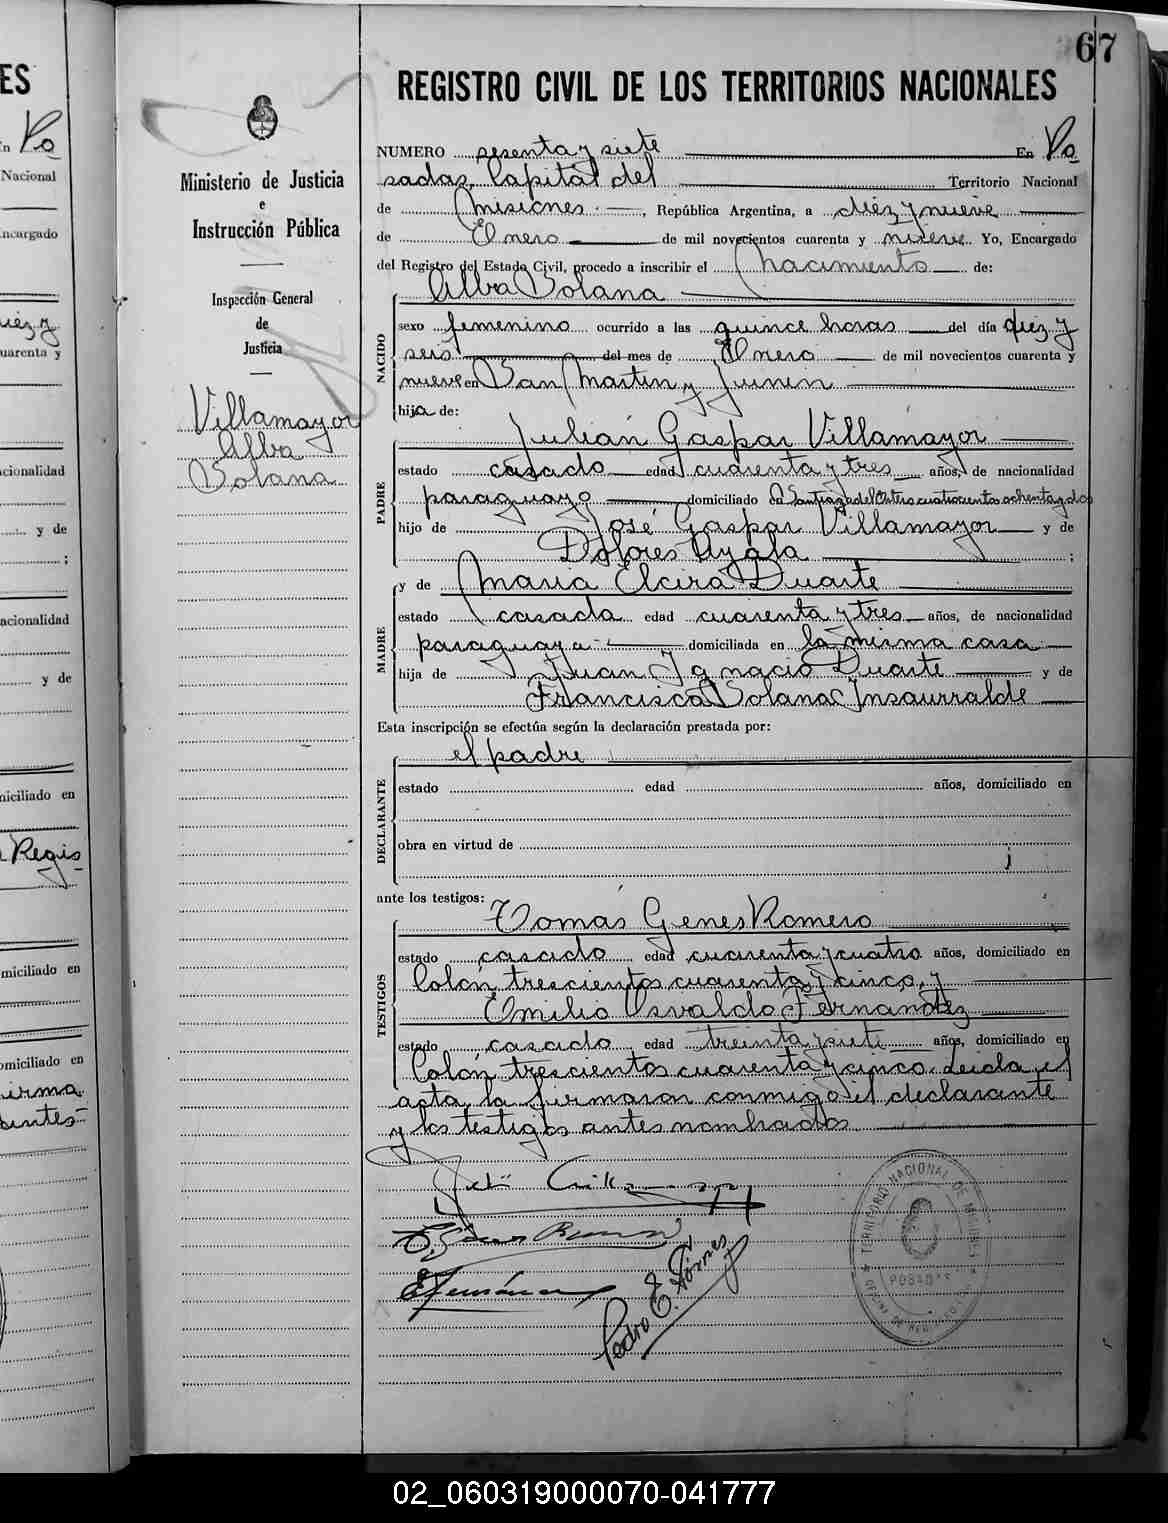 67
REGISTRO CIVIL DE LOS TERRITORIOS NACIONALES
Ministerio de Justicia
e
Instrucción Pública
Inspección General
de
Justicia
Villamayor
Alba
Solana
NUMERO sesenta y siete En Po
sadas, Capital del Territorio Nacional
de Misiones, República Argentina, a diez y nueve
de Enero de mil novecientos cuarenta y nueve Yo, Encargado
del Registro del Estado Civil, procedo a inscribir el Nacimiento de:
Alba Solana
NACIDO
sexo femenino ocurrido a las quince horas del día diez y
seis del mes de Enero de mil novecientos cuarenta y
nueve en San Martin y Junin
hija de:
Julián Gaspar Villamayor
PADRE
estado casado edad cuarenta y tres años, de nacionalidad
paraguayo domiciliado Santiago del Estero cuatrocientos ochenta y dos
hijo de José Gaspar Villamayor y de
Dolores Ayala ;
y de Maria Elcira Duarte
MADRE
estado casada edad cuarenta y tres años, de nacionalidad
paraguaya domiciliada en la misma casa
hija de Juan Ignacio Duarte y de
Francisca Solana Insaurralde
Esta inscripción se efectúa según la declaración prestada por:
el padre
DECLARANTE
estado edad años, domiciliado en
obra en virtud de
;
ante los testigos:
Tomás Genes Romero
TESTIGOS
estado casado edad cuarenta y cuatro años, domiciliado en
Colón trescientos cuarenta y cinco, y
Emilio Osvaldo Fernandez
estado casado edad treinta y siete años, domiciliado en
Colón trescientos cuarenta y cinco. Leida el
acta, la firmaron conmigo el declarante
y los testigos antes nombrados
Pedro E. Torres
TERRITORIO NACIONAL DE MISIONES
POSADAS
ES
En Po
Nacional
Encargado
diez y
cuarenta y
nacionalidad
y de
;
nacionalidad
y de
domiciliado en
Regis
domiciliado en
domiciliado en
firma
02_060319000070-041777